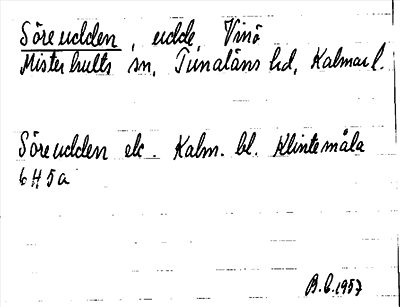 Söreudden, udde, Vinö
Misterhults sn, Tunaläns hd, Kalmar l.
Söreudden ek. Kalm. bl. Klintemåla
6H5a
B.C. 1957